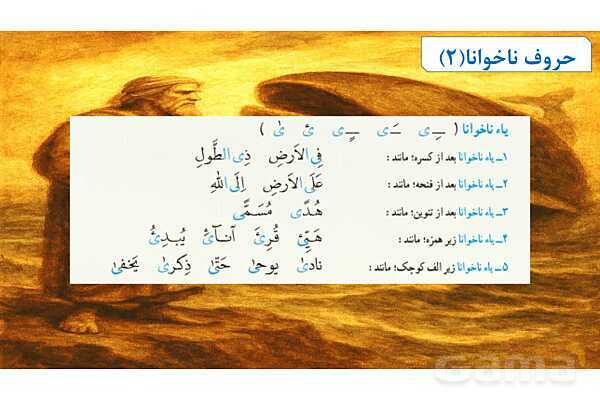 حروف ناخوانا(۲)
یاء ناخوانا ( ـِـی ـَـی ـٍـی ئ یٰ )
۱ـ یاء ناخوانا بعد از کسره؛ مانند : فِی الاَرضِ ذِی الطَّولِ
۲ـ یاء ناخوانا بعد از فتحه؛ مانند : عَلَی الاَرضِ اِلَی اللهِ
۳ـ یاء ناخوانا بعد از تنوین؛ مانند : هُدًی مُسَمًّی
۴ـ یاء ناخوانا زیر همزه؛ مانند : هَیِّئ قُرِئَ آنـآئِ یُبدِئُ
۵ـ یاء ناخوانا زیر الف کوچک؛ مانند : نادیٰ یوحیٰ حَتّیٰ ذِکریٰ یَخفیٰ
Gama